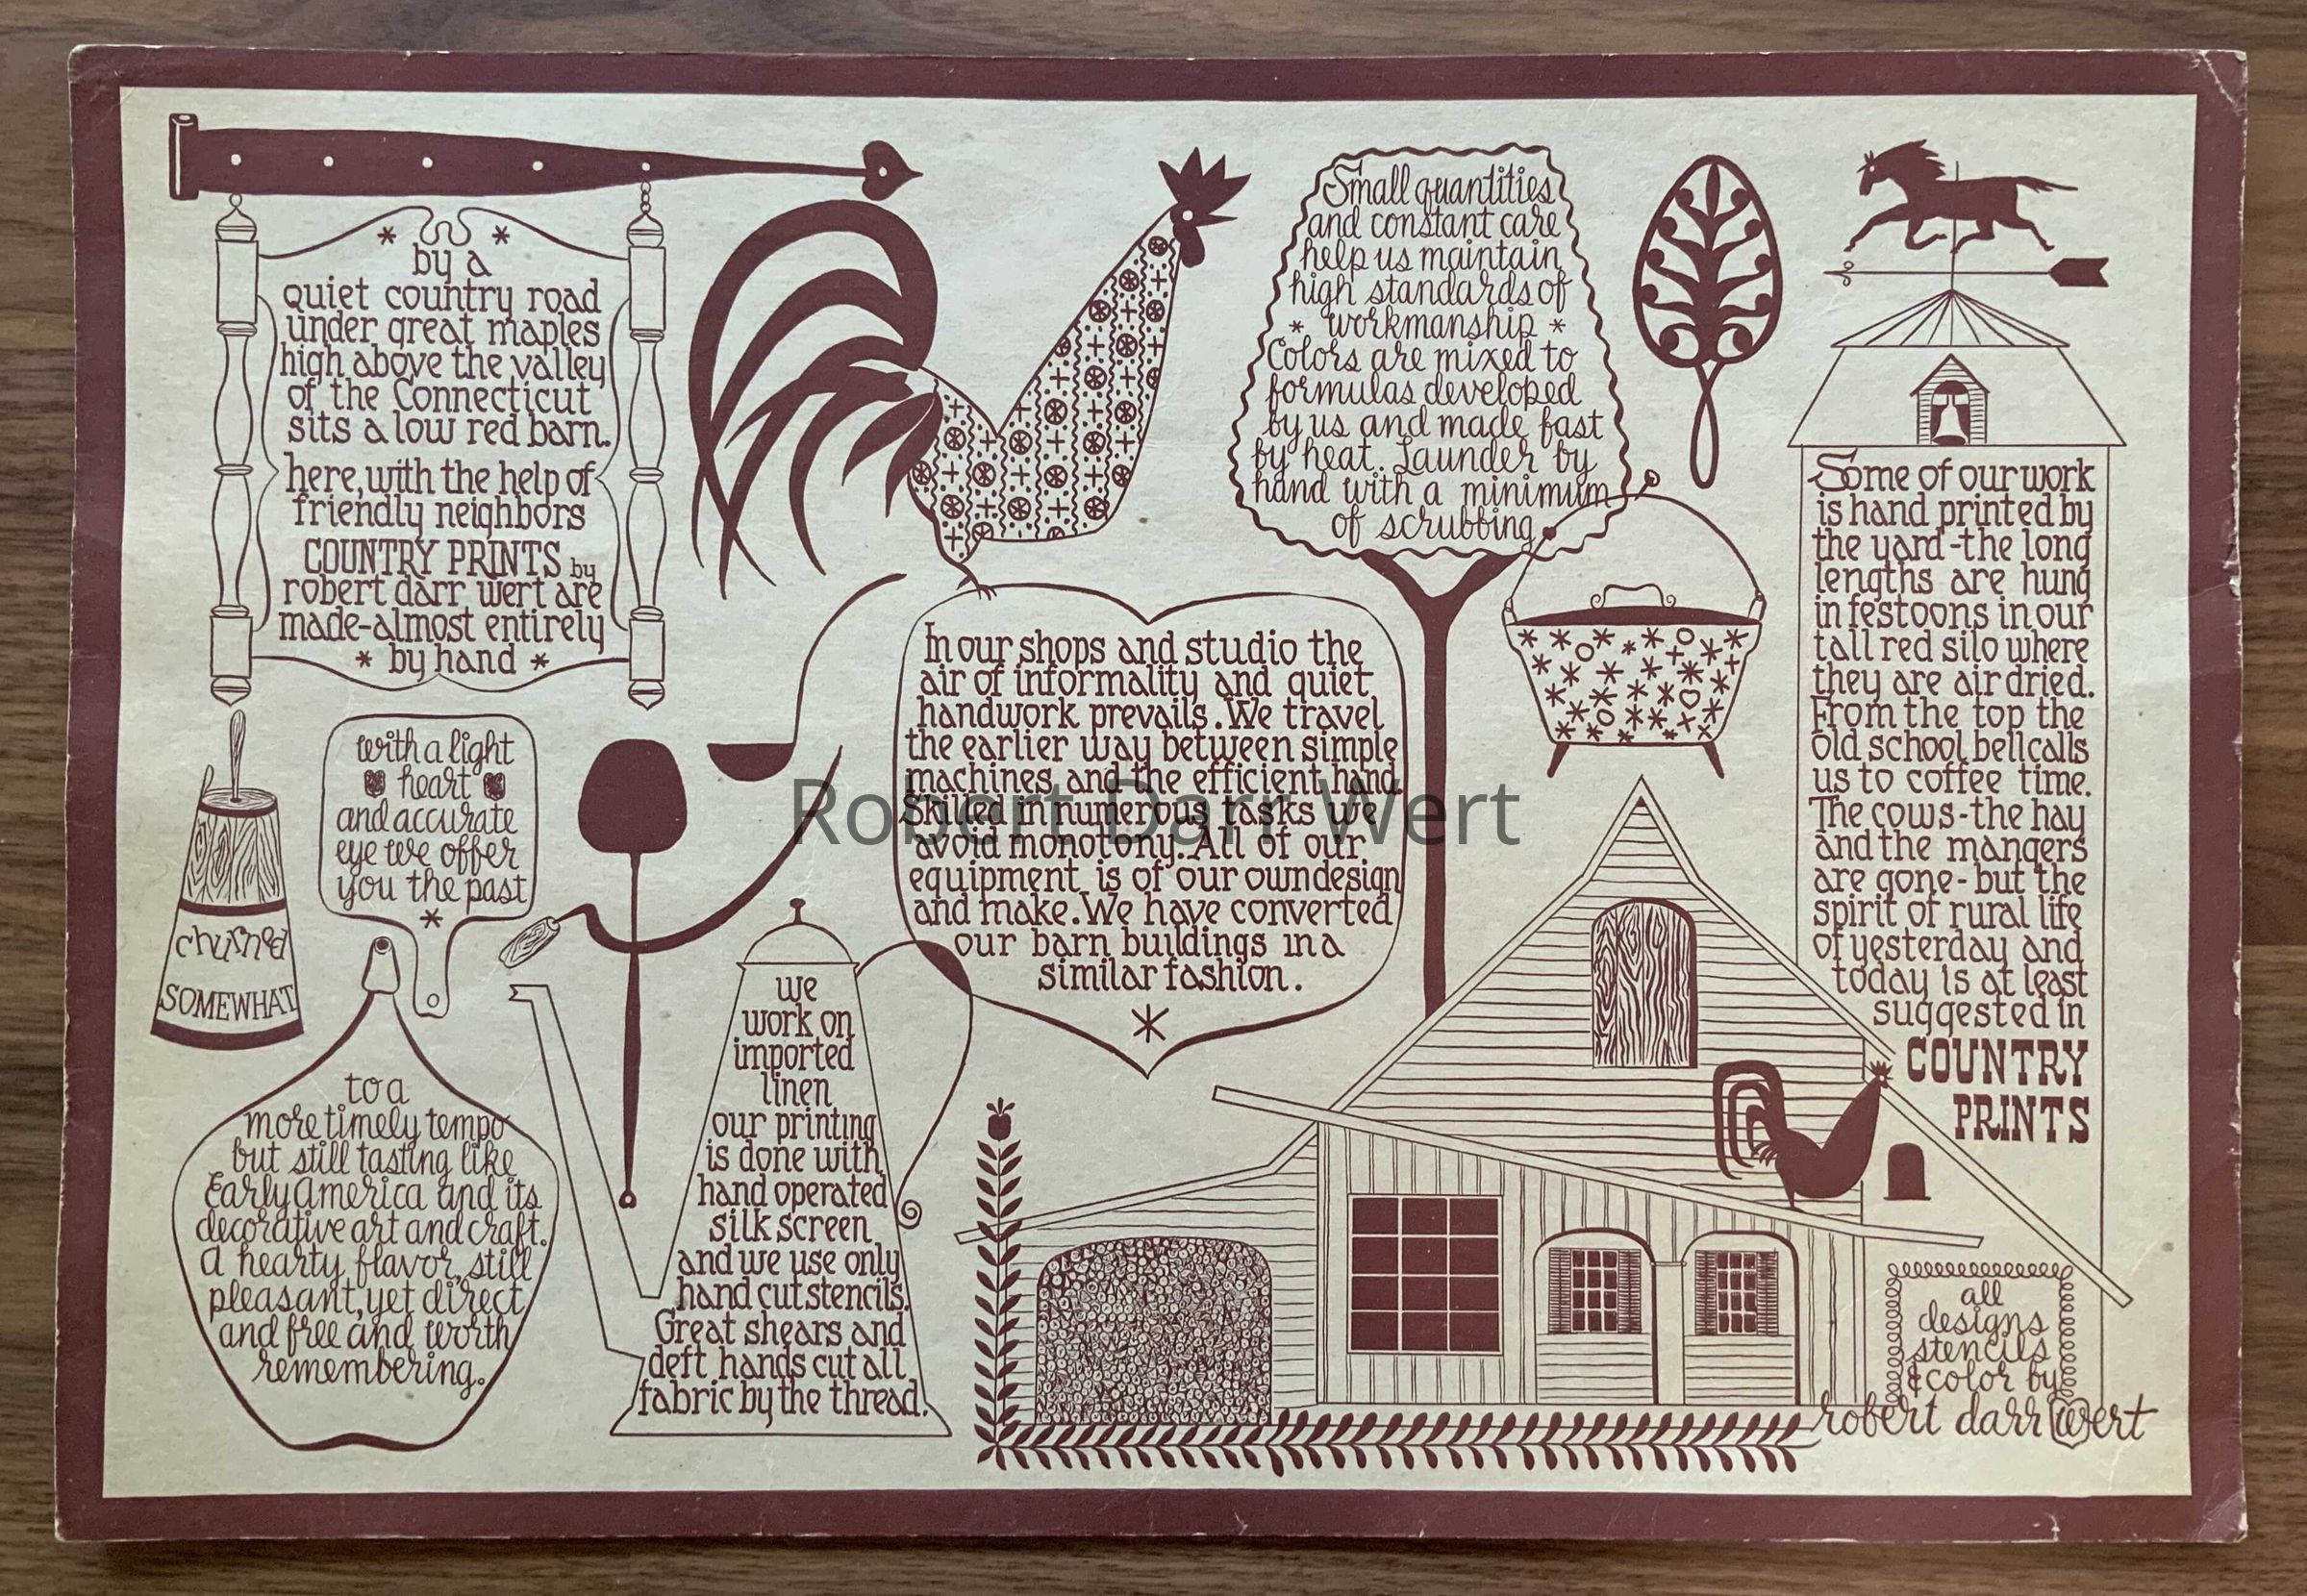 * *
by a
quiet country road
under great maples
high above the valley
of the Connecticut
sits a low red barn.
here, with the help of
friendly neighbors
COUNTRY PRINTS by
robert darr wert are
made-almost entirely
* by hand *
with a light
heart
and accurate
eye we offer
you the past
*
churned
SOMEWHAT
to a
more timely tempo
but still tasting like
Early America and its
decorative art and craft.
A hearty flavor, still
pleasant, yet direct
and free and worth
remembering.
we
work on
imported
linen
our printing
is done with
hand operated
silk screen
and we use only
hand cut stencils.
Great shears and
deft hands cut all
fabric by the thread.
In our shops and studio the
air of informality and quiet
handwork prevails. We travel
the earlier way between simple
machines and the efficient hand
Skilled in numerous tasks we
avoid monotony. All of our
equipment is of our own design
and make. We have converted
our barn buildings in a
similar fashion.
*
Small quantities
and constant care
help us maintain
high standards of
* workmanship *
Colors are mixed to
formulas developed
by us and made fast
by heat. Launder by
hand with a minimum
of scrubbing
Some of our work
is hand printed by
the yard-the long
lengths are hung
in festoons in our
tall red silo where
they are air dried.
From the top the
old school bell calls
us to coffee time.
The cows-the hay
and the mangers
are gone-but the
spirit of rural life
of yesterday and
today is at least
suggested in
COUNTRY
PRINTS
all
designs
stencils
& color by
robert darr wert
Robert Darr Wert